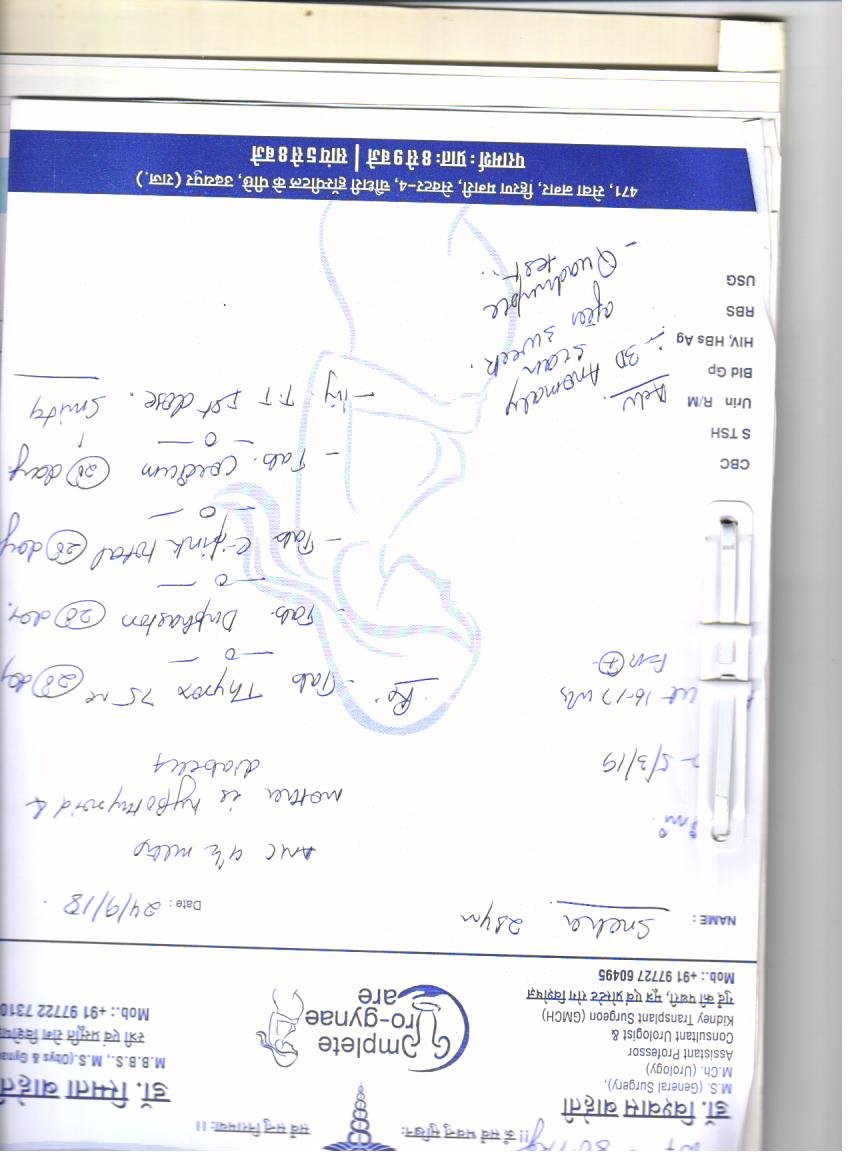 Wt - 80.1 kg
!! ॐ सर्वे भवन्तु सुखिनः
सर्वे सन्तु निरामयाः !!
डॉ. विश्वास बाहेती
M.S. (General Surgery),
M.Ch. (Urology)
Assistant Professor
Consultant Urologist &
Kidney Transplant Surgeon (GMCH)
गुर्दे की पथरी, मूत्र एवं प्रोस्टेट रोग विशेषज्ञ
Mob.: +91 97727 60495
Complete
Uro-gynae
Care
डॉ. स्मिता बाहेती
M.B.B.S., M.S.(Obys & Gynae
स्त्री एवं प्रसूति रोग विशेषज्ञ
Mob.: +91 97722 7310
NAME : Sneha 28yrs
Date : 24/9/18
ANC 4½ months
mother is hypothyroid &
diabetes
- 5/3/19
ut 16-17 wks
FM +
Rx
- Tab Thyrox 75 (28) day
— o —
- Tab. Duphaston (28) day.
— o —
- Tab e-fink total (28) day
— o —
- Tab. Coedium (28) day.
— o —
- Inj T.T Ist dose.
Smita
CBC
S TSH
Urin R/M
Bld Gp
HIV, HBs Ag
RBS
USG
Adv.
:- 3D Anomaly
scan
after 3 week.
- Quadruple
test..
471, सेवा नगर, हिरण मगरी, सेक्टर-4, चौधरी हॉस्पीटल के पीछे, उदयपुर (राज.)
परामर्श : प्रातः 8 से 9 बजे | सांय 5 से 8 बजे